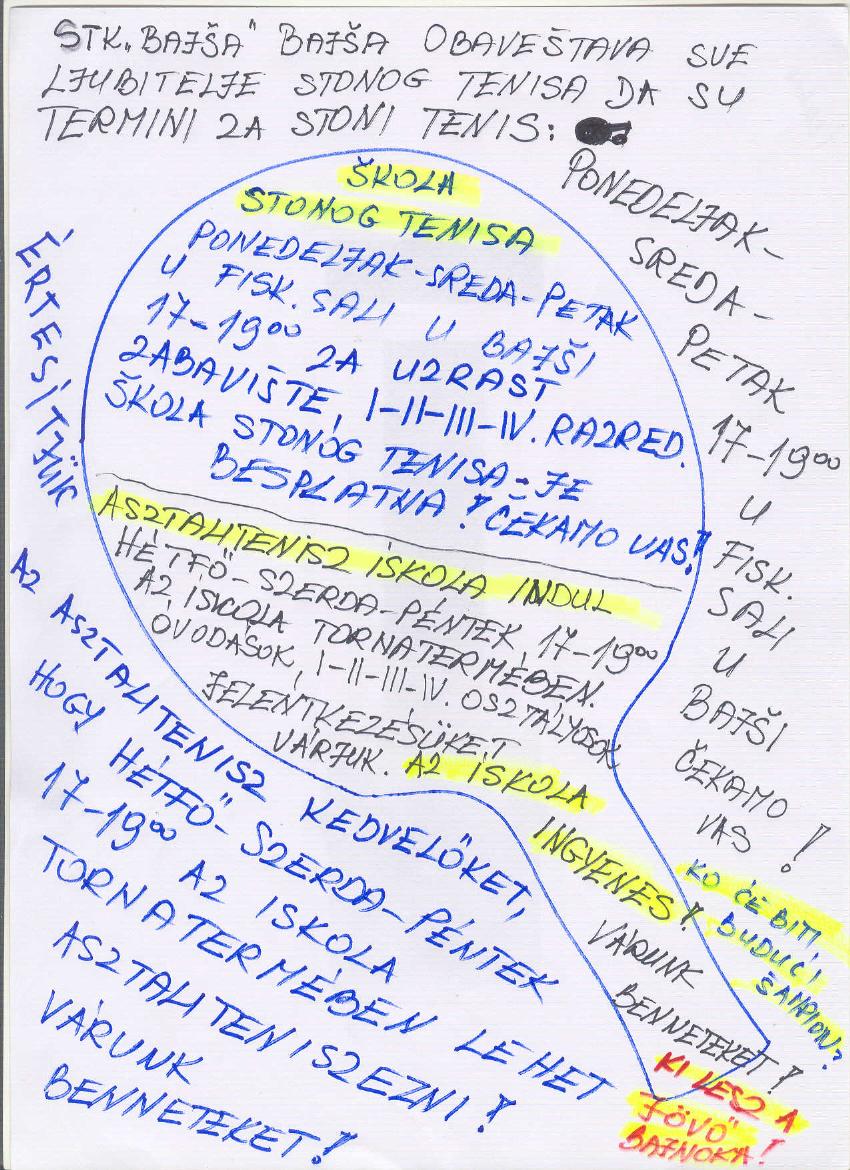 STK „BAJŠA" BAJŠA OBAVEŠTAVA SVE
LJUBITELJE STONOG TENISA DA SU
TERMINI ZA STONI TENIS:
PONEDELJAK-
SREDA-
PETAK
17-19⁰⁰
U
FISK.
SALI
U
BAJŠI
ČEKAMO
VAS !
ŠKOLA
STONOG TENISA
PONEDELJAK-SREDA-PETAK
U FISK. SALI U BAJŠI
17-19⁰⁰ ZA UZRAST
ZABAVIŠTE, I-II-III-IV. RAZRED.
ŠKOLA STONOG TENISA JE
BESPLATNA! ČEKAMO VAS!
ASZTALITENISZ ISKOLA INDUL
HÉTFŐ-SZERDA-PÉNTEK, 17-19⁰⁰
AZ ISKOLA TORNATERMÉBEN.
ÓVODÁSOK, I-II-III-IV. OSZTÁLYOSOK
JELENTKEZÉSÜKET
VÁRJUK. AZ ISKOLA
INGYENES!
VÁRUNK
BENNETEKET!
ÉRTESÍTJÜK
AZ ASZTALITENISZ KEDVELŐKET,
HOGY HÉTFŐ-SZERDA-PÉNTEK
17-19⁰⁰ AZ ISKOLA
TORNATERMÉBEN LEHET
ASZTALITENISZEZNI!
VÁRUNK
BENNETEKET!
KO ĆE BITI
BUDUĆI
ŠAMPION?
KI LESZ A
JÖVŐ
BAJNOKA!